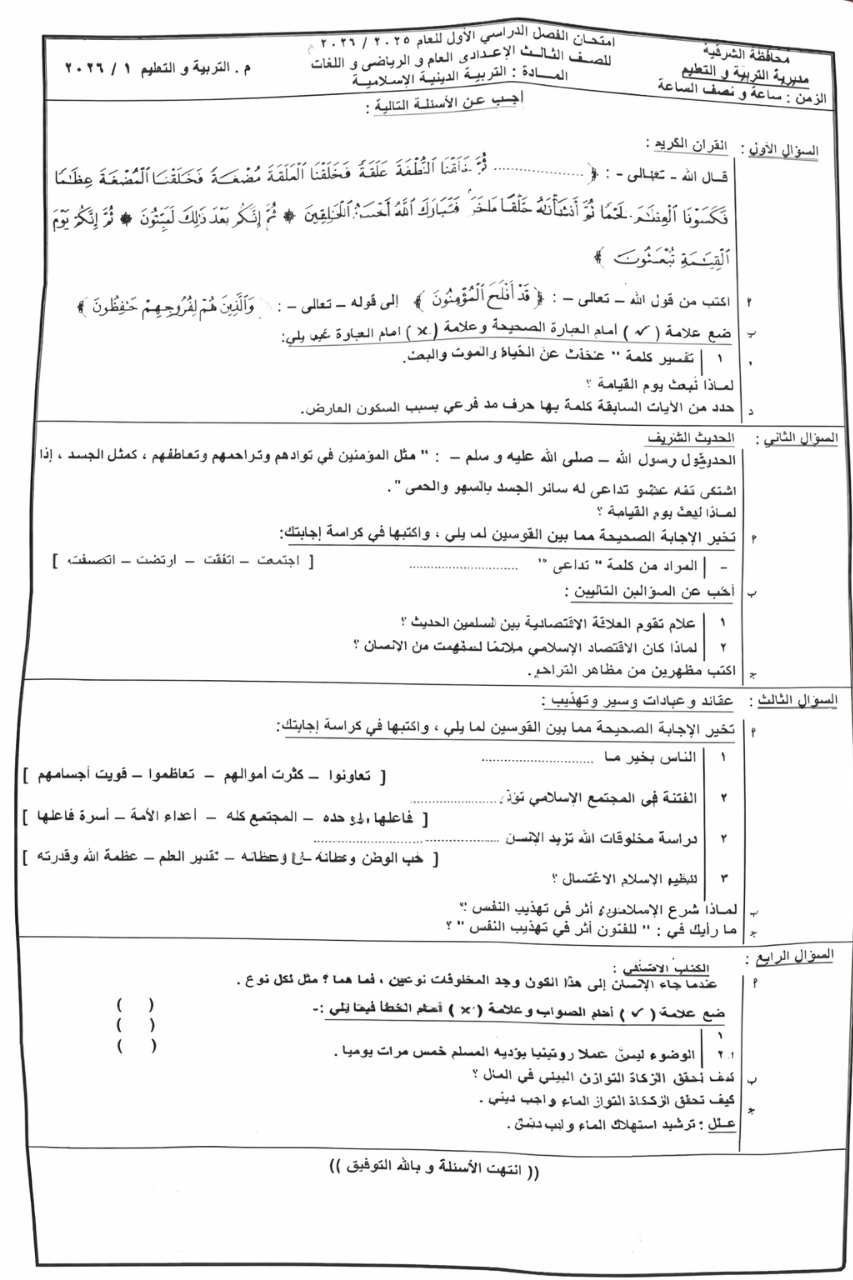 محافظة الشرقية
مديرية التربية و التعليم
الزمن : ساعة و نصف الساعة
امتحان الفصل الدراسي الأول للعام ٢٠٢٥ / ٢٠٢٦ م
للصف الثالث الإعدادى العام و الرياضى و اللغات
المــادة : التربية الدينية الإسلامية
م . التربية و التعليم ١ / ٢٠٢٦
أجب عن الأسئلة التالية :
السؤال الأول : القرآن الكريم :
قـال الله - تعـالى - : ﴿ .................. ثُمَّ النُّطْفَةَ عَلَقَةً فَخَلَقْنَا الْعَلَقَةَ مُضْغَةً فَخَلَقْنَا الْمُضْغَةَ عِظَٰمًا
فَكَسَوْنَا الْعِظَٰمَ لَحْمًا ثُمَّ أَنشَأْنَٰهُ خَلْقًا فَتَبَارَكَ اللَّهُ أَحْسَنُ الْخَٰلِقِينَ * ثُمَّ إِنَّكُم بَعْدَ ذَٰلِكَ * ثُمَّ إِنَّكُمْ يَوْمَ
الْقِيَٰمَةِ تُبْعَثُونَ ﴾
٢ اكتب من قول الله – تعالى – : ﴿ قَدْ أَفْلَحَ الْمُؤْمِنُونَ ﴾ إلى قوله – تعالى – : وَالَّذِينَ هُمْ لِفُرُوجِهِمْ حَٰفِظُونَ ﴾
ب ضع علامة ( ✓ ) أمام العبارة الصحيحة وعلامة ( × ) امام يلي:
١ تفسير كلمة " عن الحياة والموت والبعث.
لماذا نبعث يوم القيامة ؟
د حدد من الآيات السابقة كلمة بها حرف مد فرعي بسبب السكون العارض.
السؤال الثاني : الحديث الشريف
رسول الله – صلى الله عليه و سلم – : " مثل المؤمنين في توادهم وتراحمهم وتعاطفهم ، كمثل الجسد ، إذا
اشتكى عضو تداعى له سائر الجسد بالسهر والحمى " .
لماذا يوم القيامة ؟
م تخير الإجابة الصحيحة مما بين القوسين لما يلي ، واكتبها في كراسة إجابتك:
- المراد من كلمة " تداعى " .................. [ اجتمعت – اتفقت – ارتضت – اتصفت ]
ب عن السؤالين التاليين :
١ علام تقوم العلاقة الاقتصادية بين الحديث ؟
٢ لماذا كان الاقتصاد الإسلامي من الانسان ؟
ج اكتب مظهرين من مظاهر التراحم.
السؤال الثالث : عقائد وعبادات وسير وتهذيب :
م تخير الإجابة الصحيحة مما بين القوسين لما يلي ، واكتبها في كراسة إجابتك:
١ الناس بخير مـا ..................
[ تعاونوا – كثرت أموالهم – تعاظموا – قويت أجسامهم ]
٢ الفتنة في المجتمع الإسلامي ..................
[ فاعلها وحده – المجتمع كله – أعداء الأمة – أسرة فاعلها ]
٢ دراسة مخلوقات الله تزيد ..................
[ حب الوطن – تقدير العلم – عظمة الله وقدرته ]
٣ الاسلام الاغتسال ؟
ب لماذا شرع أثر في تهذيب النفس ؟
ج ما رأيك في : " للفنون أثر في تهذيب النفس " ؟
السؤال الرابع : الكتاب :
م عندما جاء الإنسان إلى هذا الكون وجد المخلوقات نوعين ، فما هما ؟ مثل لكل نوع .
ضع علامة ( ✓ ) أمام الصواب وعلامة ( × ) أمام الخطأ فيما يلي :-
١ ( )
٢ الوضوء ليس عملا روتينيا يؤديه المسلم خمس مرات يوميا . ( )
( )
ب تحقق الزكاة التوازن البيني في المال ؟
ج كيف تحقق الماء واجب ديني .
علل : ترشيد استهلاك الماء
(( انتهت الأسئلة و بالله التوفيق ))